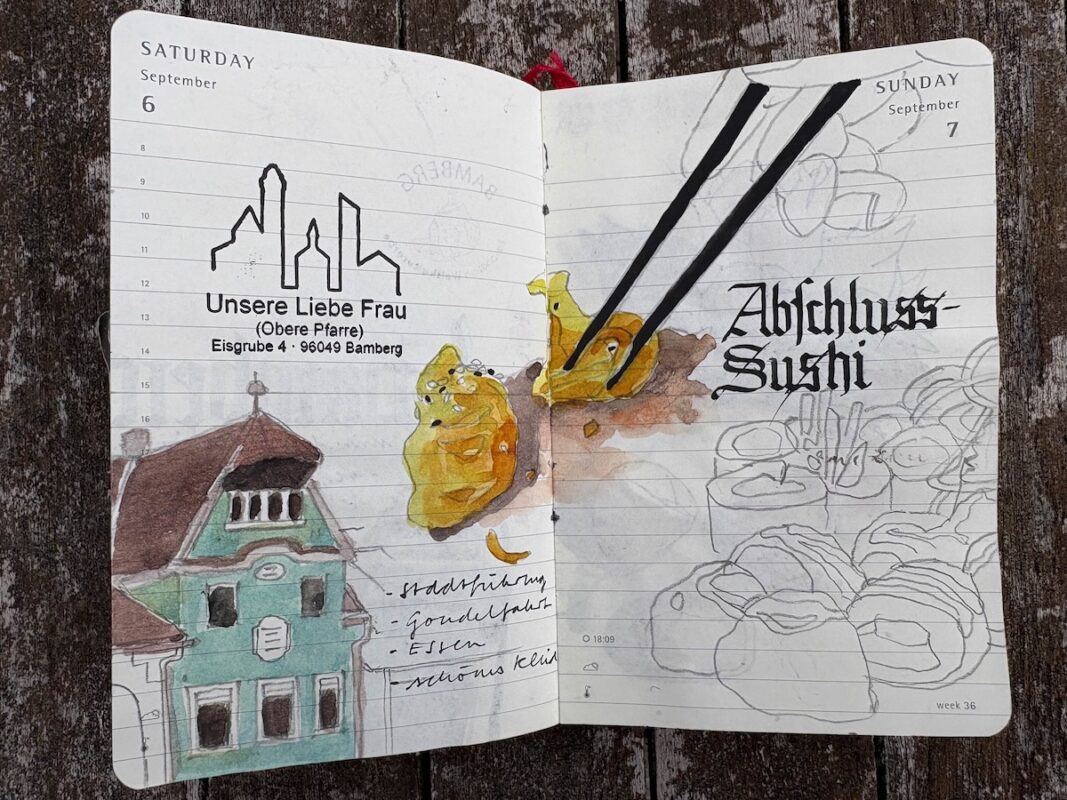 SATURDAY
September
6
8
9
10
11
12
13
14
15
16
BAMBERG
Unsere Liebe Frau
(Obere Pfarre)
Eisgrube 4 · 96049 Bamberg
- Stadtführung
- Gondelfahrt
- Essen
- schönes Kleid
SUNDAY
September
7
Abschluss-
Sushi
18:09
week 36